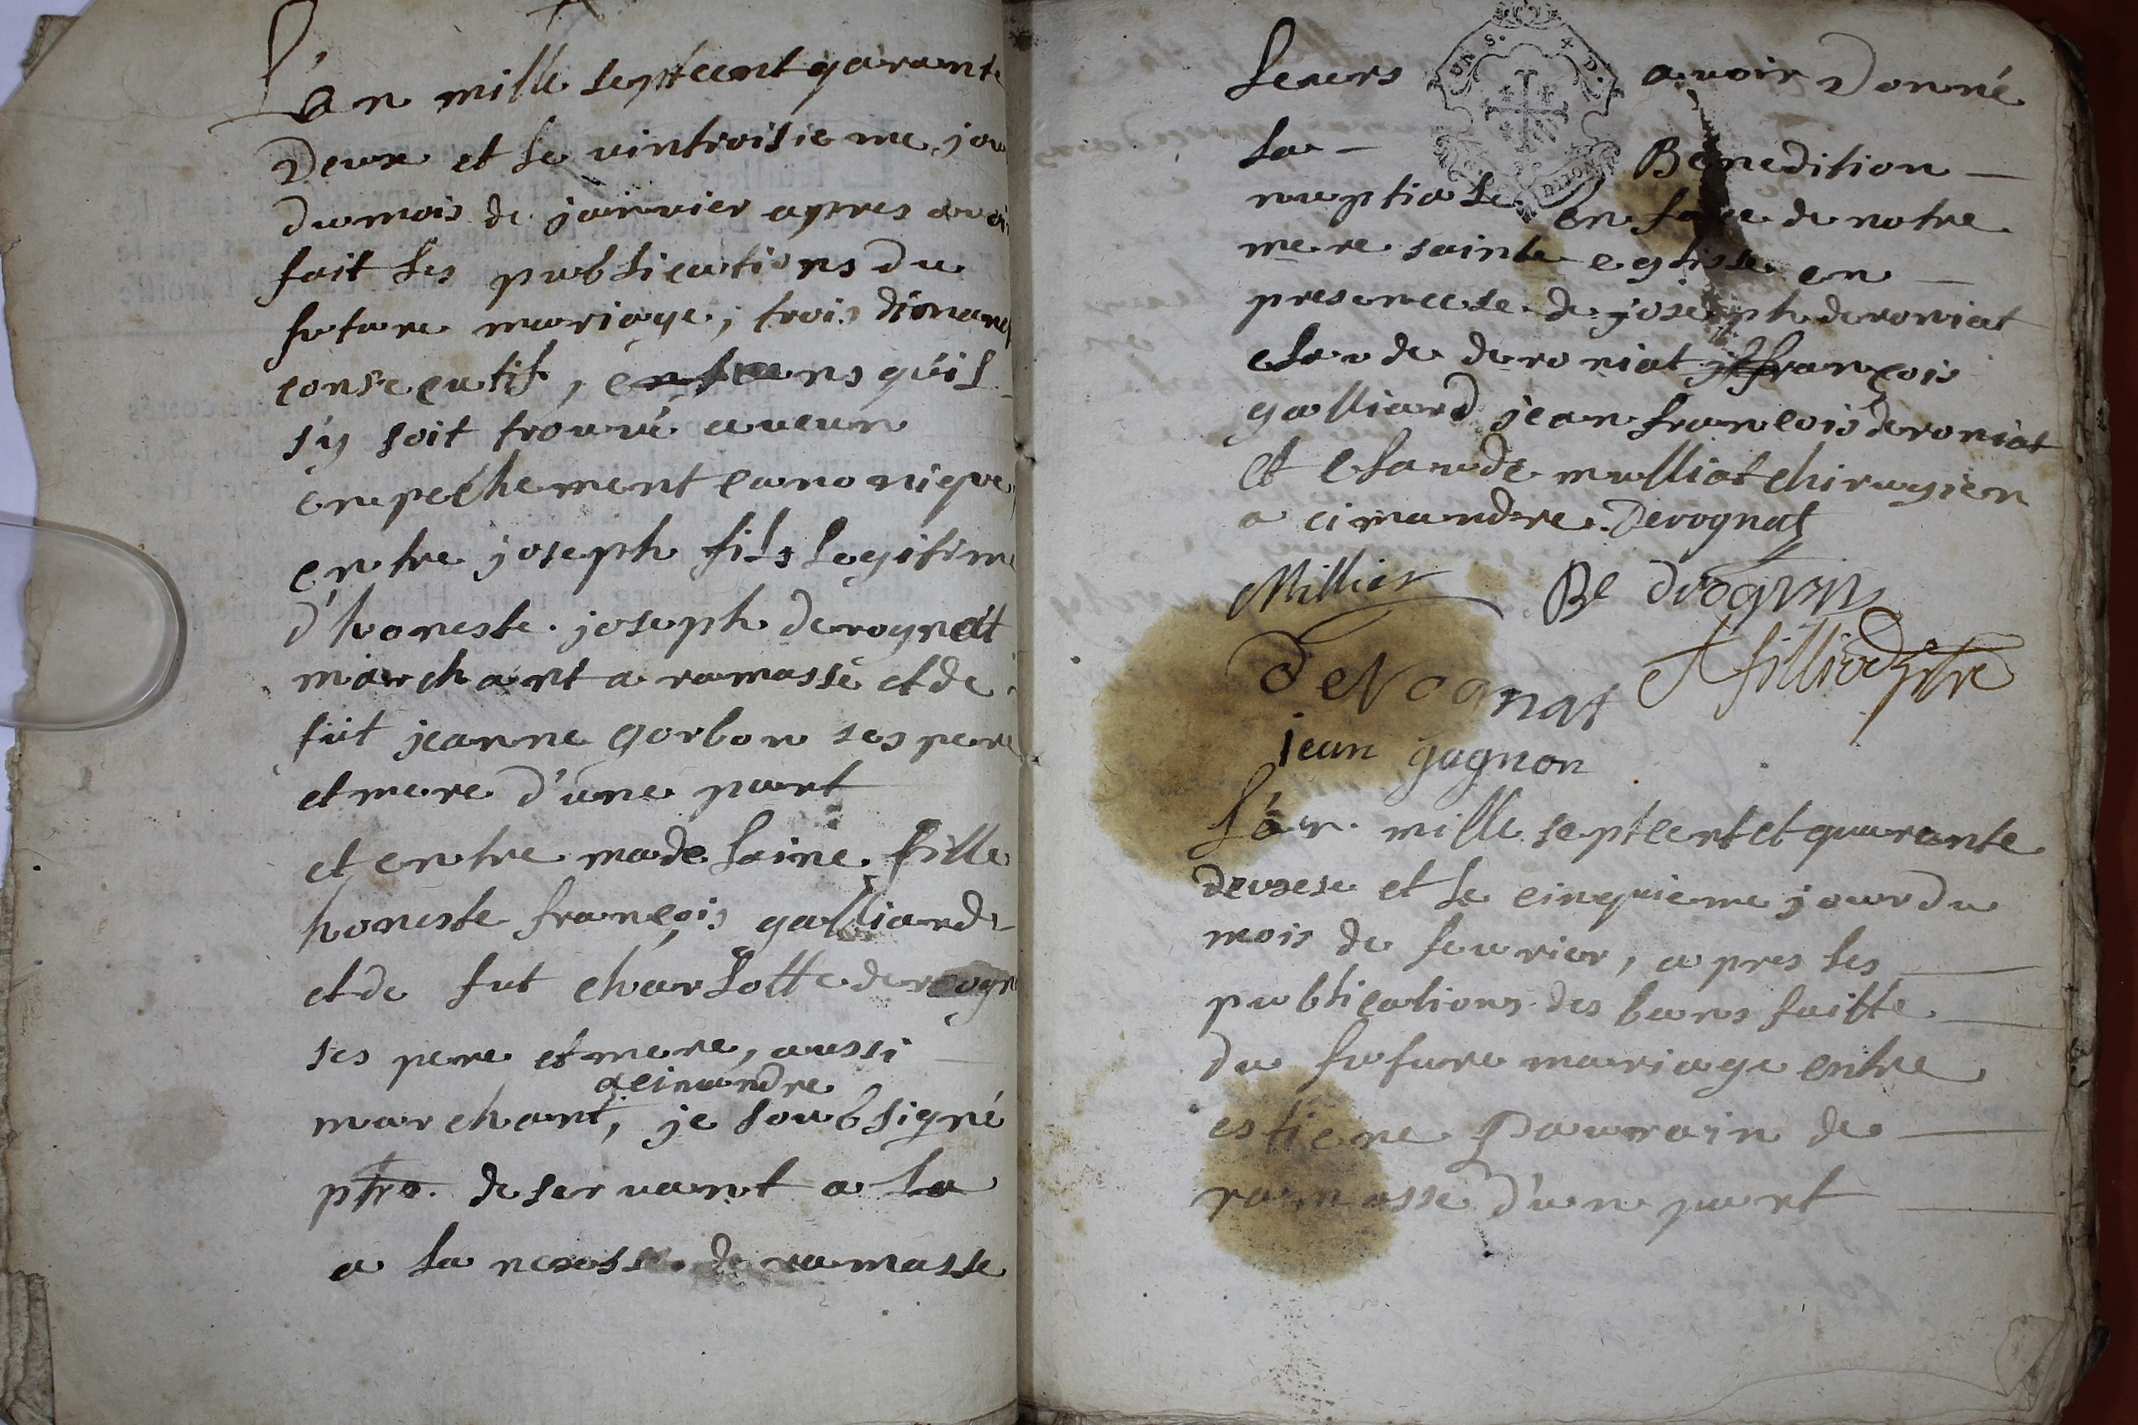 L'an mille septcent quarante
Deux et le vintroisieme jou
du mois de janvier apres avoi
fait les publications du
future mariage, trois dimanc
consecutif, sans qu'il
s'y soit trouvé aucun
enpechement canonique
entre joseph fils legitime
d'honeste joseph derognat
marchant a ramasse et de
fut jeanne gorbon ses pere
et mere d'une part
et entre madelaine fille
honeste françois galliard
et de fut charlotte derogn
ses pere et mere, aussi
a cimandre
marchant, je soubsigné
ptre. deservant a la
a la de ramasse
leurs avoir Donné
UN S. X D.
la - Benedition
DIJON
nuptiale en face de notre
mere sainte eglisse en
presencese de joseph deroniat
claude deroniat françois
galliard jean francois deroniat
et claude mulliat chirugien
a cimandre. Derognat
Millier
Derognat
jean gagnon
L'an mille septcent et quarante
deuxse et le cinquieme jour du
mois de feuvrier, apres les
publications des bans faitte
du future mariage entre
estiene Pauvrain de
ramasse d'un part